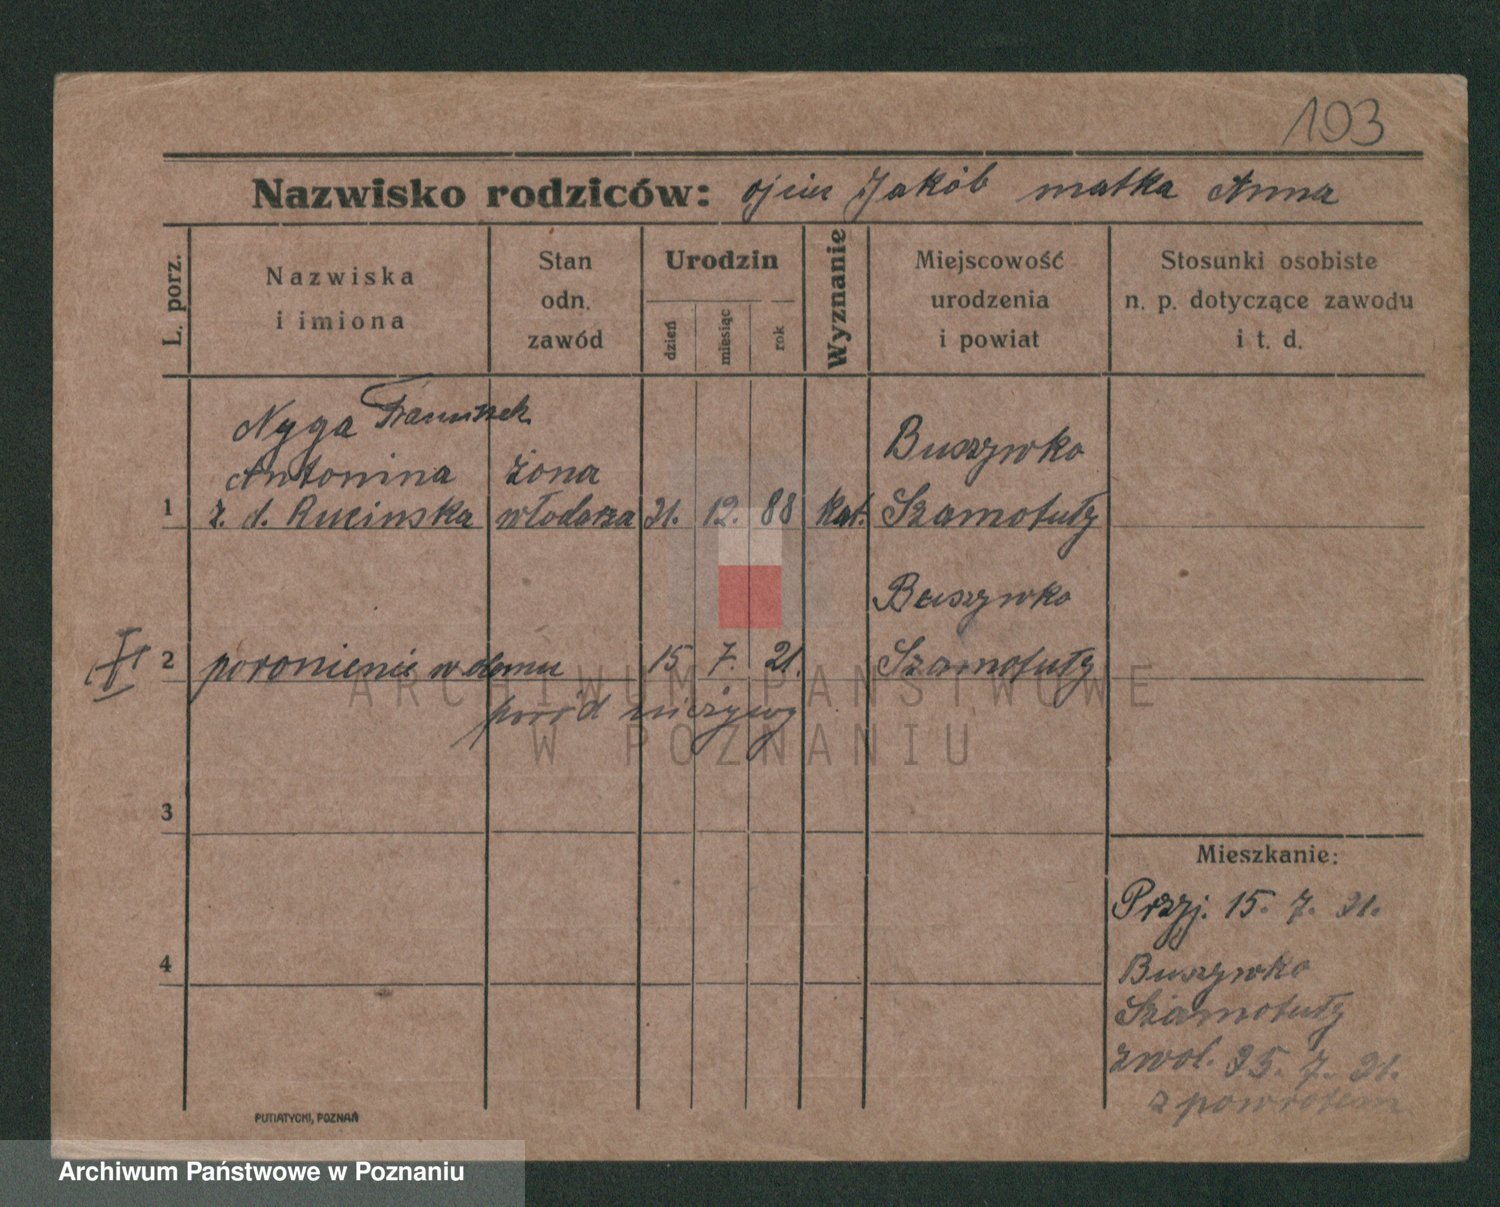 193
Nazwisko rodziców: ojciec Jakób matka Anna
L. porz.
Nazwiska
i imiona
Stan
odn.
zawód
Urodzin
dzień
miesiąc
rok
Wyznanie
Miejscowość
urodzenia
i powiat
Stosunki osobiste
n. p. dotyczące zawodu
i t. d.
Nyga Franciszek
Antonina żona Buszywko
1 z. d. Rucinska włodarza 21. 12. 88 kat. Szamotuły
Buszywko
2 poronienie w domu 15 7. 21. Szamotuły
poród nieżywy
3
4
Mieszkanie:
Przyj. 15. 7. 21.
Buszywko
Szamotuły
zwol. 25. 7. 21.
z powrotem
PUTIATYCKI, POZNAŃ
ARCHIWUM PAŃSTWOWE
W POZNANIU
Archiwum Państwowe w Poznaniu